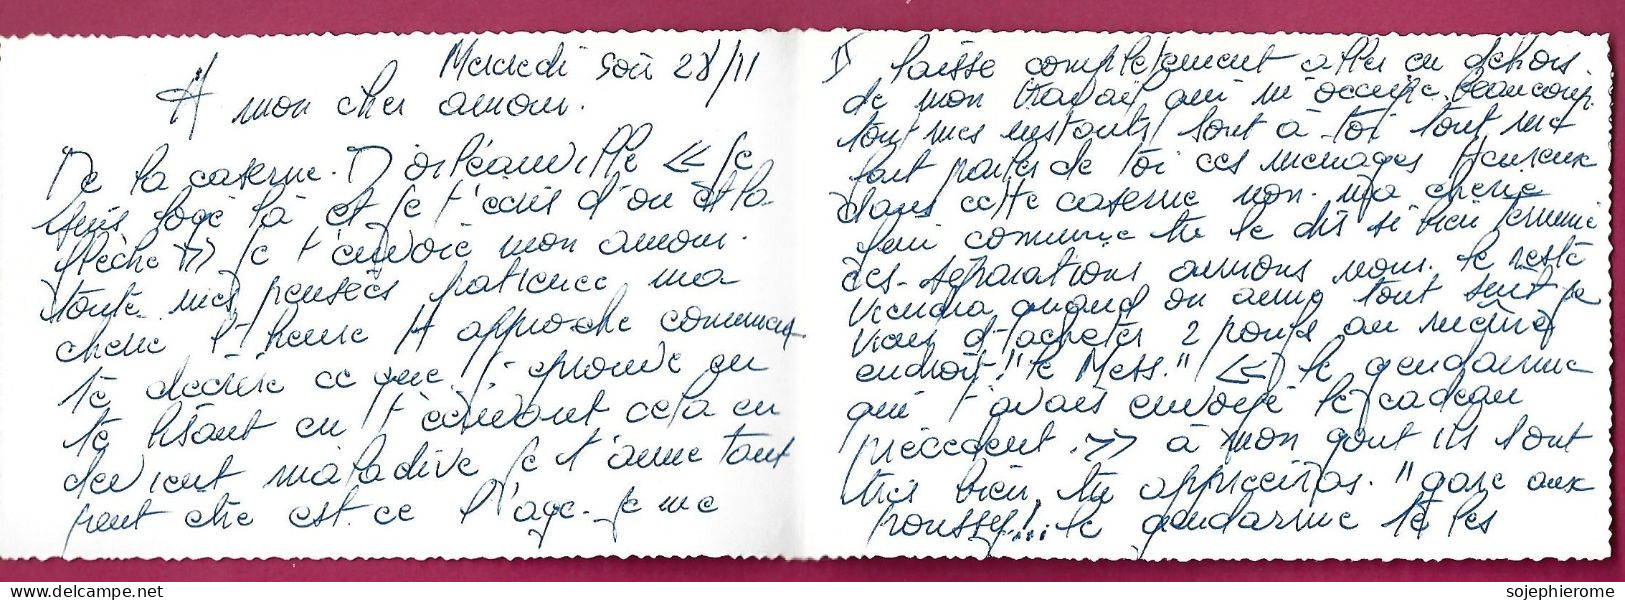 Mercredi soir 28/11
A mon cher amour.
De la caserne. D'orléanville << je
suis logé là et je t'écris d'ou est la
flèche >> je t'envoie mon amour.
toute mes pensées patience ma
cherie l'heure H approche comment
te decrire ce que j'eprouve en
te lisant en t'écrivant cela en
devient maladive je t'aime tant
peut etre est ce l'age. je me
II laisse complètement aller en dehors.
de mon travail qui m'occupe beaucoup.
tout mes instants sont à toi tout me
fait parler de toi ces menages heureux
dans cette caserne non. ma cherie
comme tu le dis si bien
ces séparations aimons nous. le reste
viendra quand on aime tout sert je
viens d'acheter 2 poufs au même
endroit! "le Mess." << le gendarme
qui t'avais envoyé le cadeau
précédent. >> à mon gout ils sont
très bien, tu apprecieras. "gare aux
! ... le gendarme te les
sojephierome
delcampe.net